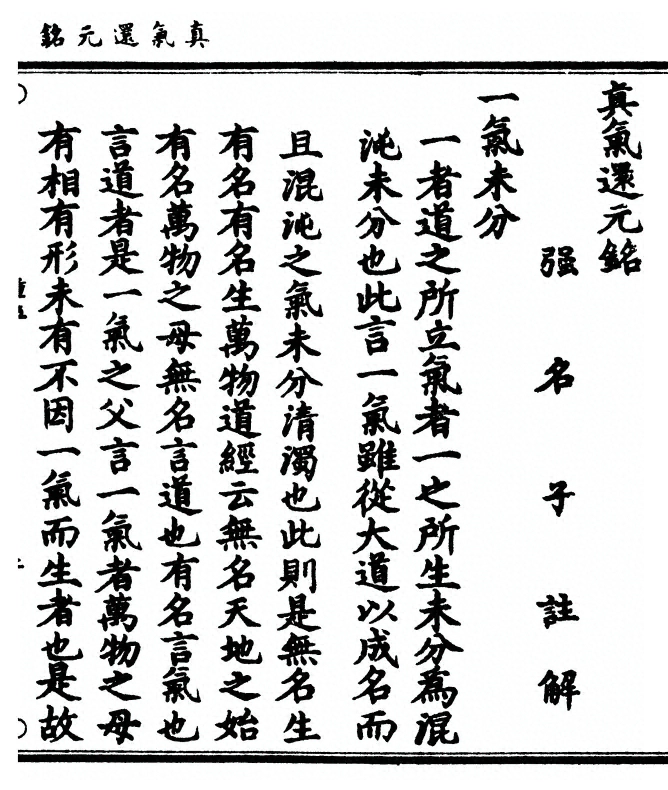 真氣還元銘
真氣還元銘
强名子註解
一氣未分
一者道之所立氣者一之所生未分爲混
沌未分也此言一氣雖從大道以成名而
且混沌之氣未分清濁也此則是無名生
有名有名生萬物道經云無名天地之始
有名萬物之母無名言道也有名言氣也
言道者是一氣之父言一氣者萬物之母
有相有形未有不因一氣而生者也是故